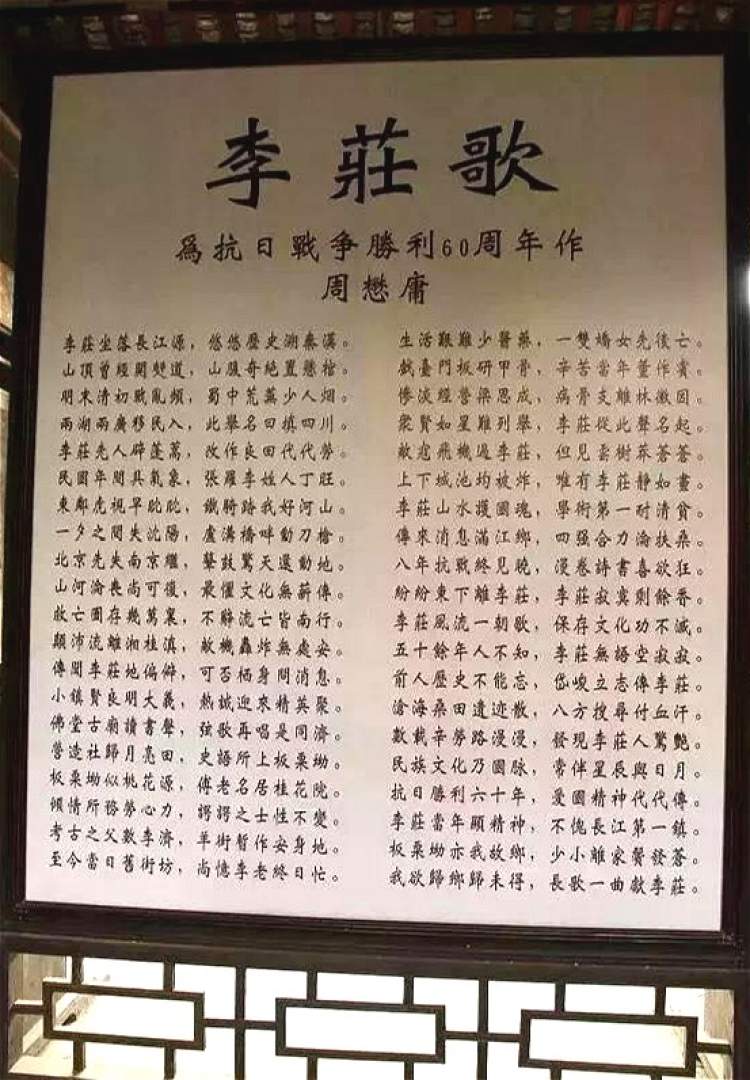 李莊歌
爲抗日戰争勝利60周年作
周懋庸
李莊坐落長江源，悠悠歷史溯秦漢。
山頂曾經開雙道，山腹奇絕置懸棺。
明末清初戰亂頻，蜀中荒蕪少人烟。
兩湖兩廣移民入，此舉名曰填四川。
李莊先人辟蓬蒿，改作良田代代勞。
民國年間具氣象，張羅李姓人丁旺。
東鄰虎視早眈眈，鐵騎踏我好河山。
一夕之間失沈陽，盧溝橋畔動刀槍。
北京先失南京繼，鼙鼓驚天還動地。
山河淪喪尚可復，最懼文化無薪傳。
救亡圖存幾萬裏，不辭流亡皆南行。
顛沛流離湘桂滇，敵機轟炸無處安。
傳聞李莊地偏僻，可否栖身問消息。
小鎮賢良明大義，熱誠迎來精英聚。
佛堂古廟讀書聲，弦歌再唱是同濟。
營造社歸月亮田，史語所上板栗坳。
板栗坳似桃花源，傅老名居桂花院。
傾情所務勞心力，諤諤之士性不變。
考古之父數李濟，羊街暫作安身地。
至今當日舊街坊，尚憶李老終日忙。
生活艱難少醫藥，一雙嬌女先後亡。
戲臺門板研甲骨，辛苦當年董作賓。
慘淡經營梁思成，病骨支離林徽因。
衆賢如星難列舉，李莊從此聲名起。
敵寇飛機過李莊，但見雲樹莽蒼蒼。
上下城池均被炸，唯有李莊静如畫。
李莊山水護國魂，學術第一耐清貧。
傳來消息滿江鄉，四强合力淪扶桑。
八年抗戰終見晚，漫卷詩書喜欲狂。
紛紛東下離李莊，李莊寂寞剩餘香。
李莊風流一朝歇，保存文化功不滅。
五十餘年人不知，李莊無語空寂寂。
前人歷史不能忘，岱峻立志傳李莊。
滄海桑田遺迹散，八方搜尋付血汗。
數載辛勞路漫漫，發現李莊人驚艷。
民族文化乃國脉，常伴星辰與日月。
抗日勝利六十年，愛國精神代代傳。
李莊當年顯精神，不愧長江第一鎮。
板栗坳亦我故鄉，少小離家鬢發蒼。
我欲歸鄉歸未得，長歌一曲獻李莊。